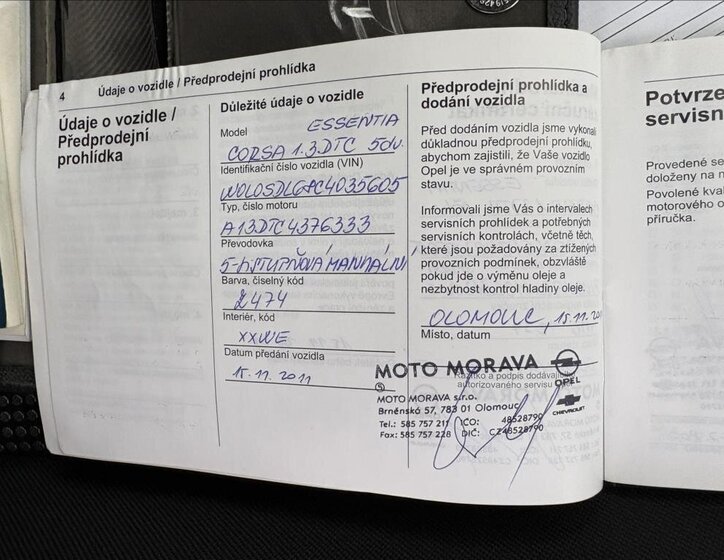 4 Údaje o vozidle / Předprodejní prohlídka
Údaje o vozidle /
Předprodejní
prohlídka
Důležité údaje o vozidle
ESSENTIA
Model
CORSA 1.3DTC 5dv.
Identifikační číslo vozidla (VIN)
W0L0SDL68C4035605
Typ, číslo motoru
A13DTC4376333
Převodovka
5-TISTUPŇOVÁ/MANUÁLNÍ
Barva, číselný kód
Z474
Interiér, kód
XXWE
Datum předání vozidla
15.11.2011
Předprodejní prohlídka a
dodání vozidla
Před dodáním vozidla jsme vykonali
důkladnou předprodejní prohlídku,
abychom zajistili, že Vaše vozidlo
Opel je ve správném provozním
stavu.
Informovali jsme Vás o intervalech
servisních prohlídek a potřebných
servisních kontrolách, včetně těch,
které jsou požadovány za ztížených
provozních podmínek, obzvláště
pokud jde o výměnu oleje a
nezbytnost kontrol hladiny oleje.
OLOMOUC, 15.11.20
Místo, datum
MOTO MORAVA
Razítko a podpis dodávají
autorizovaného servisu
OPEL
CHEVROLET
5
MOTO MORAVA s.r.o.
Brněnská 57, 783 01 Olomouc
Tel.: 585 757 211 IČO: 48528790
Fax: 585 757 228 DIČ: CZ48528790
Potvrze
servisn
Provedené se
doloženy na n
Povolené kval
motorového o
příručka.